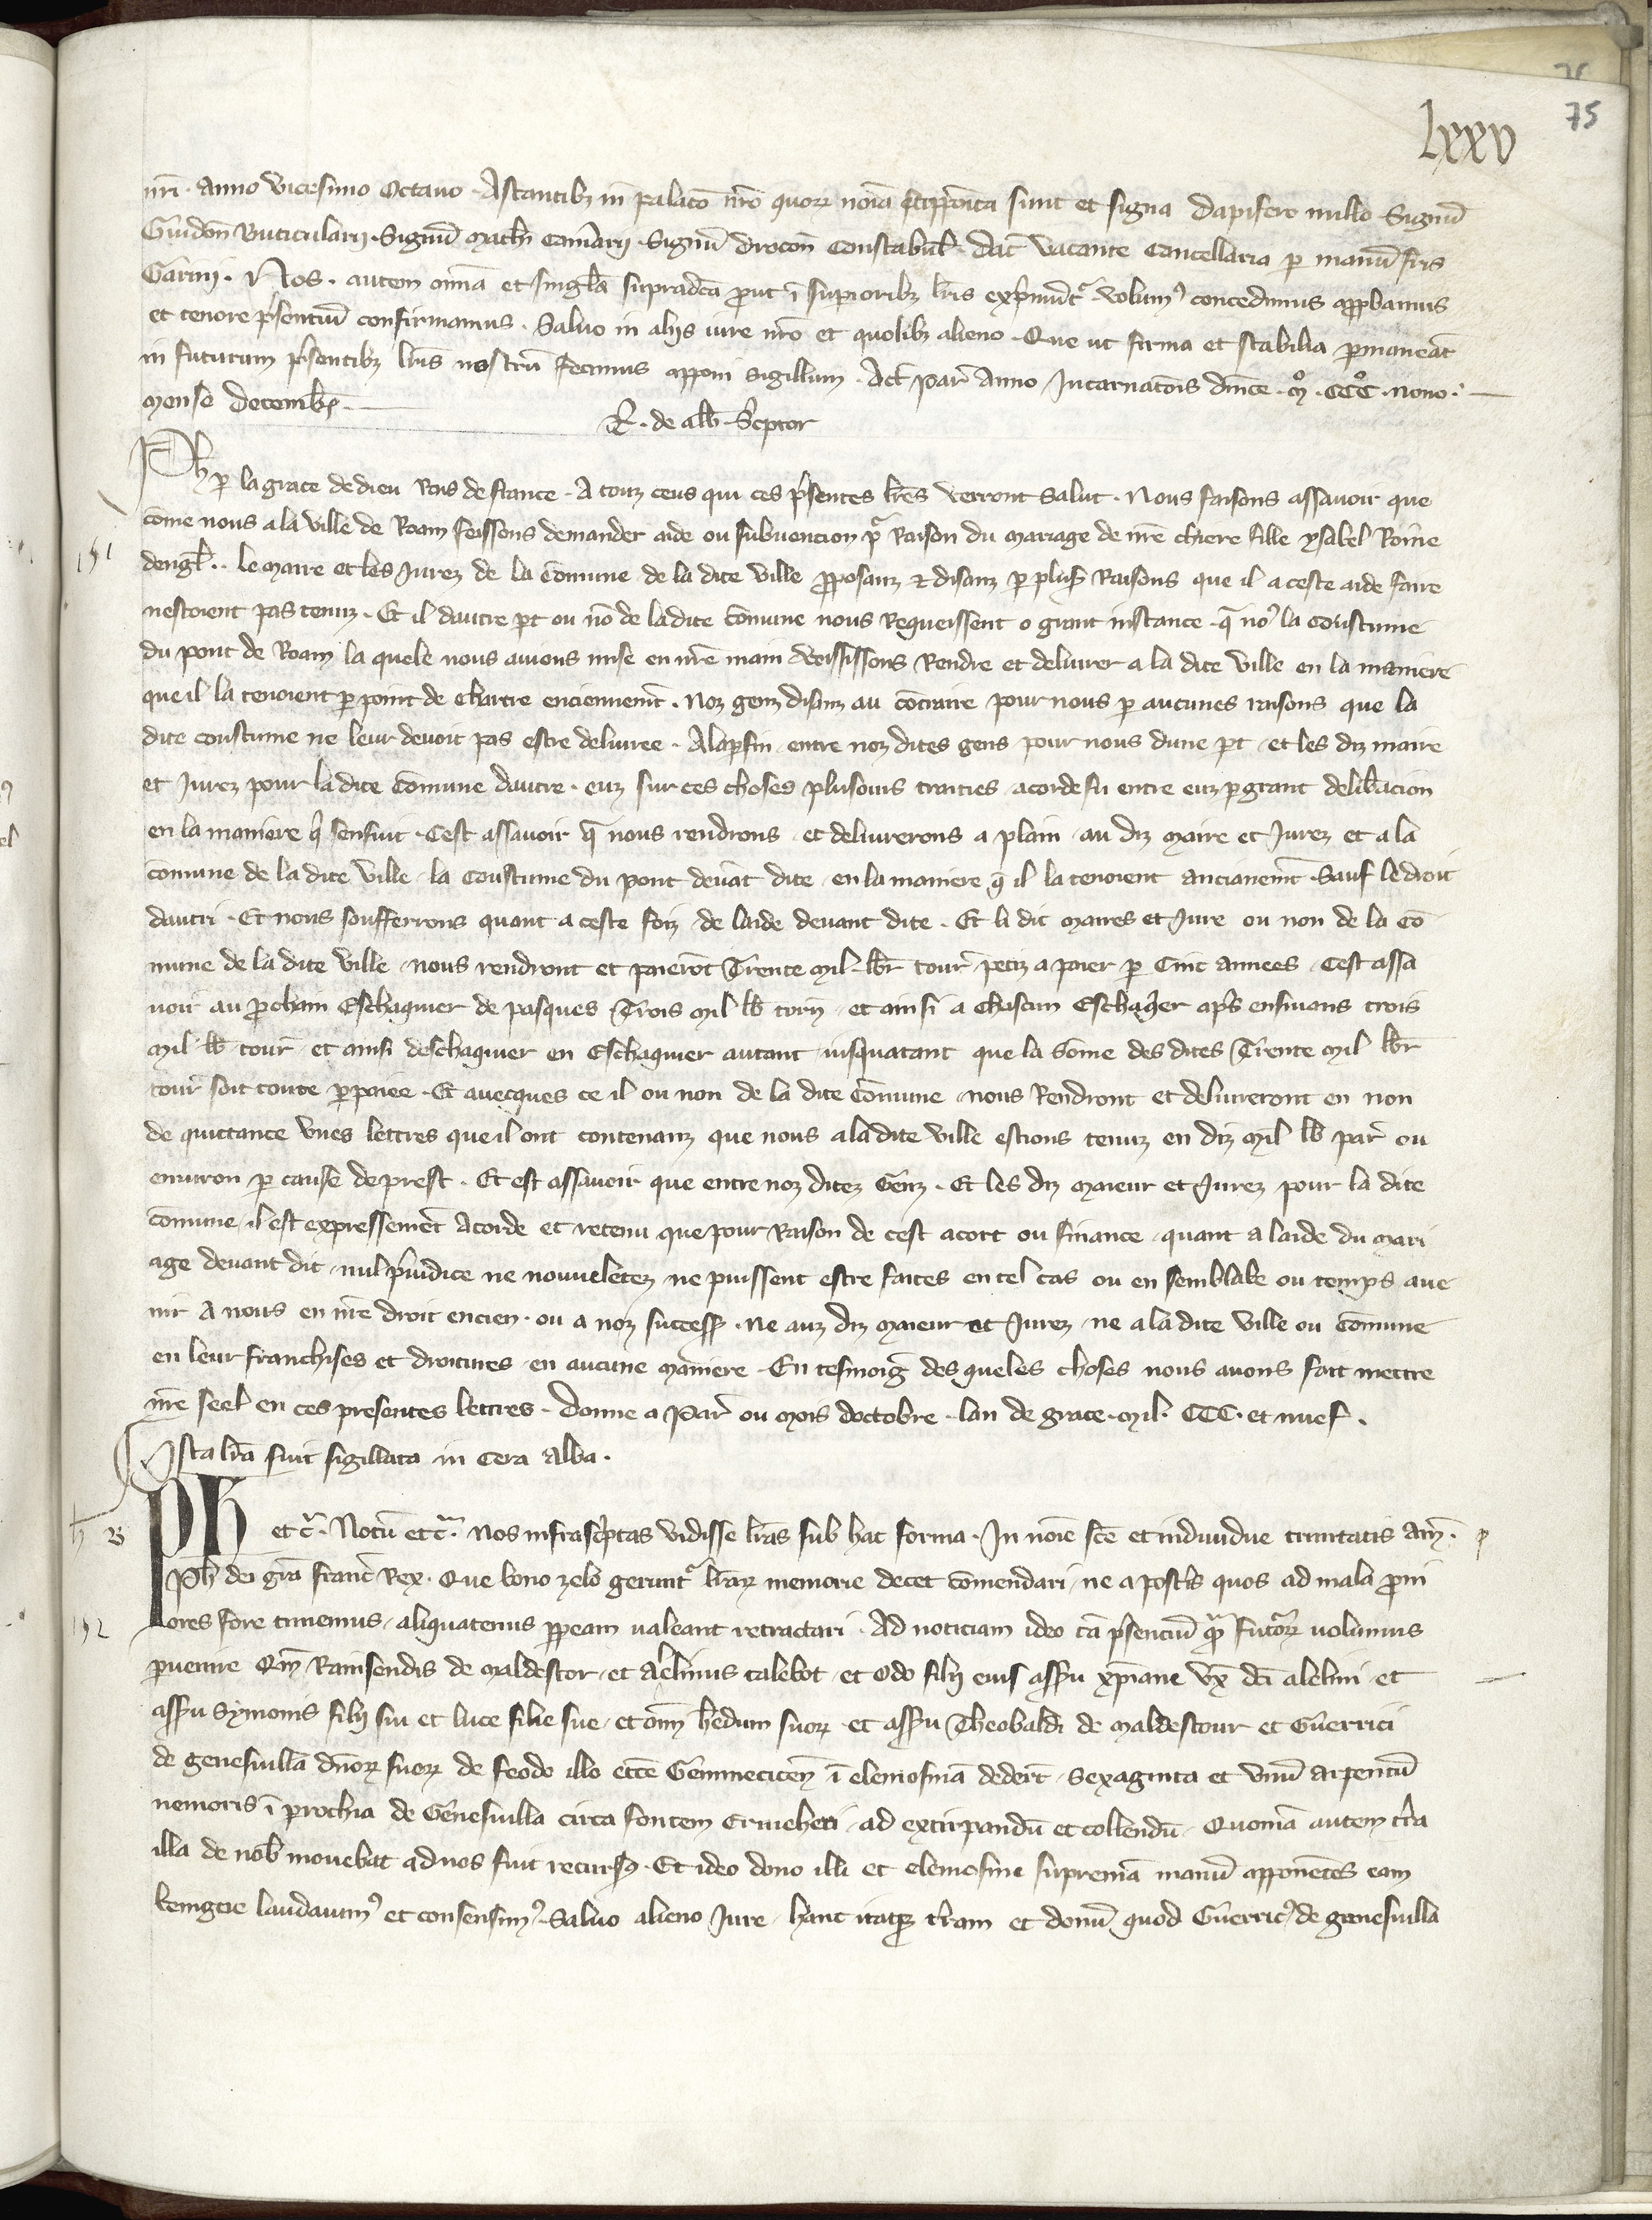 lxxv 75
nrī. anno vicesimo Octauo. Astantibz in palacō nrō quorz noīa suppōita sunt et signa Dapifero nullo. Signū
Guidōn Buticularij. Signū Math Cam̄arij. Signū Drocon̄ Constabul̄. Dat̄ vacante Cancellaria p manū fr̄is
Gar̄ini. Nos. autem om̄ia et singl̄a supradc̄a prout ī supioribz lr̄is exprimūt᷑ volum᷒ concedimus approbamus
et tenore p̄sentiū confirmamus. Saluo in alijs iure nrō et quolibz alieno. Que ut firma et stabilia p̱maneāt
in futurum p̄sentibz lr̄is nostrū fecimus apponi Sigillum. Act̄ Par̄ Anno Incarnatōis dn̄ice. mº. CCCº. nono.
Mense Decemb̄r.
R. de alb̄. Sc̄ptor
Ph p la grace de dieu Rois de france. A touz ceus qui ces p̄sentes lr̄es verront Salut. Nous faisons assauoir que
cōme nous a la ville de Roam feissons demander aide ou subuencion p̱ Raison du mariage de nrē chiere fille ysabel Roīne
dengl̄. le maire et les Jurez de la cōmune de la dite ville p̱posanz ⁊ disanz p plus̄ Raisons que il a ceste aide faire
nestoient pas tenuz. Et il dautre pt ou nō de ladite cōmune nous Requeissent o grant instance. q̄ no᷒ la coustume
du pont de Roam la quele nous auions mise en nrē main vousissions Rendre et deliurer a la dite ville en la maniere
que il la tenoient p point de chartre enciennemt̄. Noz genz disanz au cōtraire pour nous p aucunes raisons que la
dite coustume ne leur deuoit pas estre deliuree. Alaparfin entre noz dites gens pour nous dune pt et les diz maire
et Jurez pour ladite cōmune dautre. euz sur ces choses plusours traities acorde fu entre euz p grant delib̄acion
en la maniere q̄ sensuit. Cest assauoir q̄ nous rendrons et deliurerons a plain au diz maire et Jurez et a la
cōmune de la dite ville la coustume du pont deuāt dite en la maniere q̄ il la tenoient ancianemt̄. Sauf le droit
dautri. Et nous soufferrons quant a ceste foiz de laide deuant dite. Et li dit maires et Jure ou non de la cō
mune de la dite ville nous rendront et paierōt Trente mil lb̄r tour̄ petiz a paier p Cinc annees. Cest assa
uoir au p̱chain Eschaquier de pasques Trois mil lb̄ torn̄ et ainsi a chascun Eschaq̄er ap̄s ensiuans trois
mil lb̄ tour̄ et ainsi deschaquier en Eschaquier autant iusquatant que la sōme des dites Trente mil lb̄r
tour̄ soit toute p̱paiee. Et auecques ce il ou non de la dite cōmune nous Rendront et deliureront en non
de quittance vnes lettres que il ont contenanz que nous a ladite ville estions tenuz en diz mil lb̄ par̄ ou
enuiron p cause de prest. Et est assauoir que entre noz ditez Genz. Et les diz maieur et Jurez pour la dite
cōmune il est expressemēt Acorde et retenu que pour Raison de cest acort ou finance quant a laide du mari
age deuant dit nul p̄iudice ne nouueletez ne puissent estre faites en tel cas ou en semblable ou temps aue
nir a nous en nrē droit encien. ou a noz success̄. Ne auz diz maieur et Jurez ne a la dite ville ou cōmune
en leur franchises et droitures en aucune maniere. En tesmoig des queles choses nous auons fait mettre
nrē seel en ces presentes lettres. Donne a Par̄ ou mois doctobre. lan de grace. mil. CCC. et nuef.
Ista lr̄a fuit sigillata in cera alba.
Ph et c̄. Notū et c̄. Nos infrasc̄ptas vidisse lr̄as sub hac forma. In noīe sc̄e et indiuidue trinitatis am̄.
Ph dei grā franc̄ Rex. Que bono zelo gerunt᷑ lr̄arz memorie decet cōmendari ne a post̄is quos ad mala p̱ni
ores fore timemus aliquatenus pp̱eam ualeant retractari. Ad noticiam ideo tā p̄sentiū q̄ futorz volumus
p̱uenire Qm̄ Rainsendis de maldestor et Alelmus talebot et Odo filij eius assensu xp̄iane vx̄ dc̄i alelmi et
assensu Symonis filij sui et luce filie sue et om̄ h̄edum suorz et assensu Theobaldi de maldestour et Guerrici
de genesuilla dn̄orz suorz de feodo illo ecc̄e Gēmmeticen̄ ī elemosinā dederūt Sexaginta et vnū arpentū
nemoris ī p̱rochia de Genesuilla circa fontem Ermeheri ad extirpandū et collendū. Quoniā autem t̄ra
illa de nob̄ mouebat ad nos fuit recurs᷒. Et ideo dono illi et elemosine supremā manū apponētes eam
benigne laudauim᷒ et consensim᷒. Saluo alieno Jure. hanc itaqz t̄ram et donū quod Guerric᷒ de genesuilla